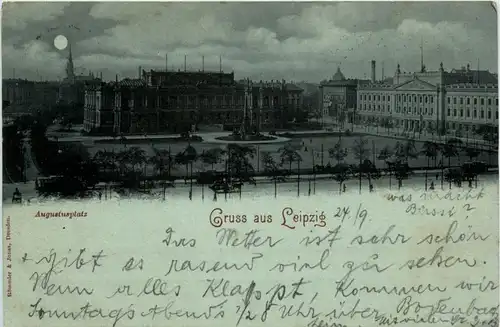 Augustusplatz
Gruss aus Leipzig 24/9
was macht
Bussi?
Das Wetter ist sehr schön
+ gibt es rasend viel zu sehen.
Wenn alles Klappt, Kommen wir
Sonntags Abends ½8 Uhr über Bodenbach
Glunder & Jeute, Dresden.